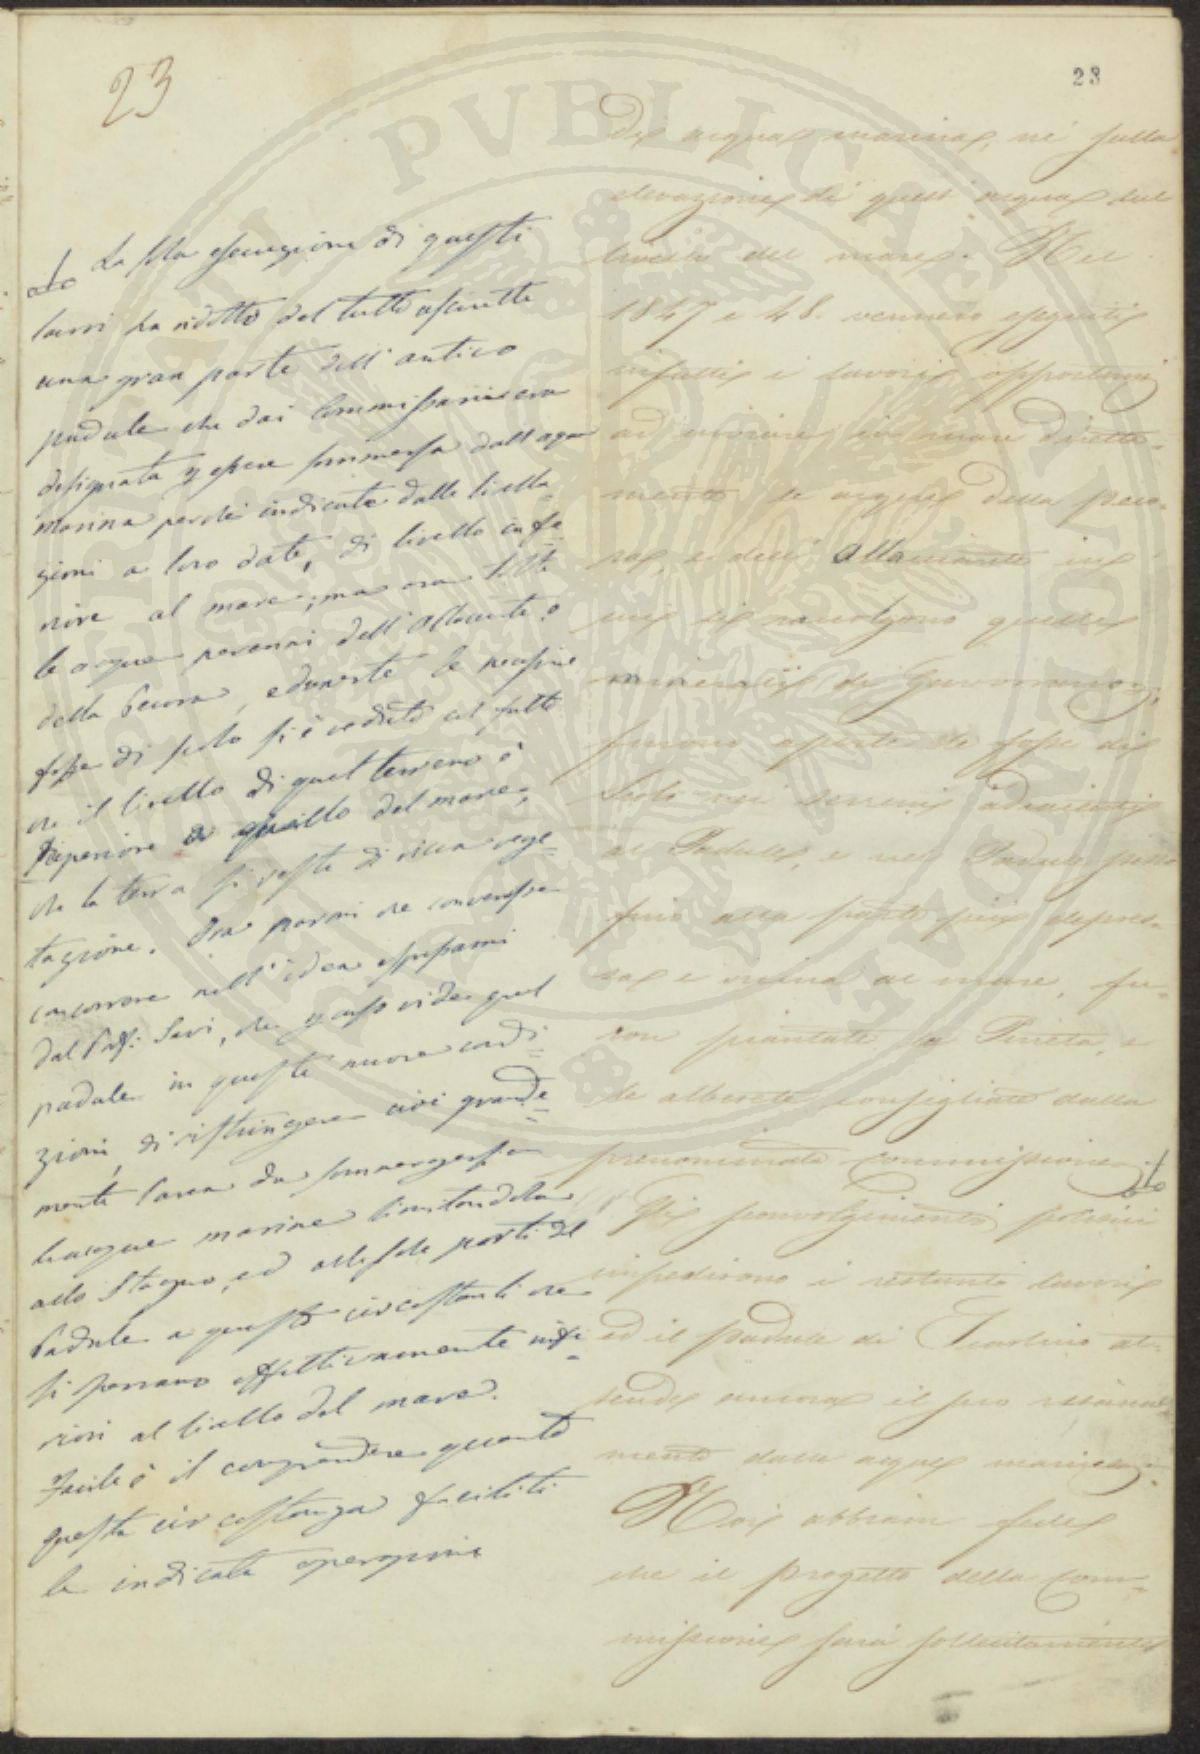 23
23
La sola esecuzione di questi
lavori ha ridotto del tutto asciutta
una gran parte dell' antico
padule che dai Commissari era
designata p essere sommersa dall'acqua
marina perché indicata dalle livella-
zioni a loro date, di livello infe-
riore al mare; ma ora tolte
le acque perenni dell'Allacciante e
della Pecora, ed aperte le
fosse di scolo si è veduto col fatto
che il livello di quel terreno è
superiore a quello del mare,
che la terra si veste di ricca vege-
tazione. Ora parmi che converrebbe
concorrere nell' idea espressami
dal Prof: Savi, che vide quel
padule in queste nuove condi-
zioni, di ristringere cioè grande-
mente l'area da sommergersi
acque marine limitandola
allo Stagno, ed alle sole parti del
Padule a questo circostanti che
si trovano effettivamente infe-
riori al livello del mare.
Facile è il comprendere quanto
questa circostanza faciliti
le indicate operazioni
di acqua marina, né sulla
elevazione di quest' acqua sul
livello del mare. Nel
1847 e 48. vennero eseguiti
infatti i lavori opportuni
ad inviare in mare diretta-
mente le acque della Peco-
ra, e dell' Allacciante in
cui si raccolgono quelle
minerali di Gavorrano;
furono aperte le fosse di
scolo nei terreni adiacenti
al Padule, e nel Padule stesso
fino alla parte più depres-
sa e vicina al mare, fu-
ron piantate la Pineta, e
le alberete consigliate dalla
prenominata commissione.
Gli sconvolgimenti politici
impedirono i restanti lavori
ed il padule di Scarlino at-
tende ancora il suo risana-
mento dalle acque marine.
Noi abbiam fede
che il progetto della Com-
missione sarà sollecitamente